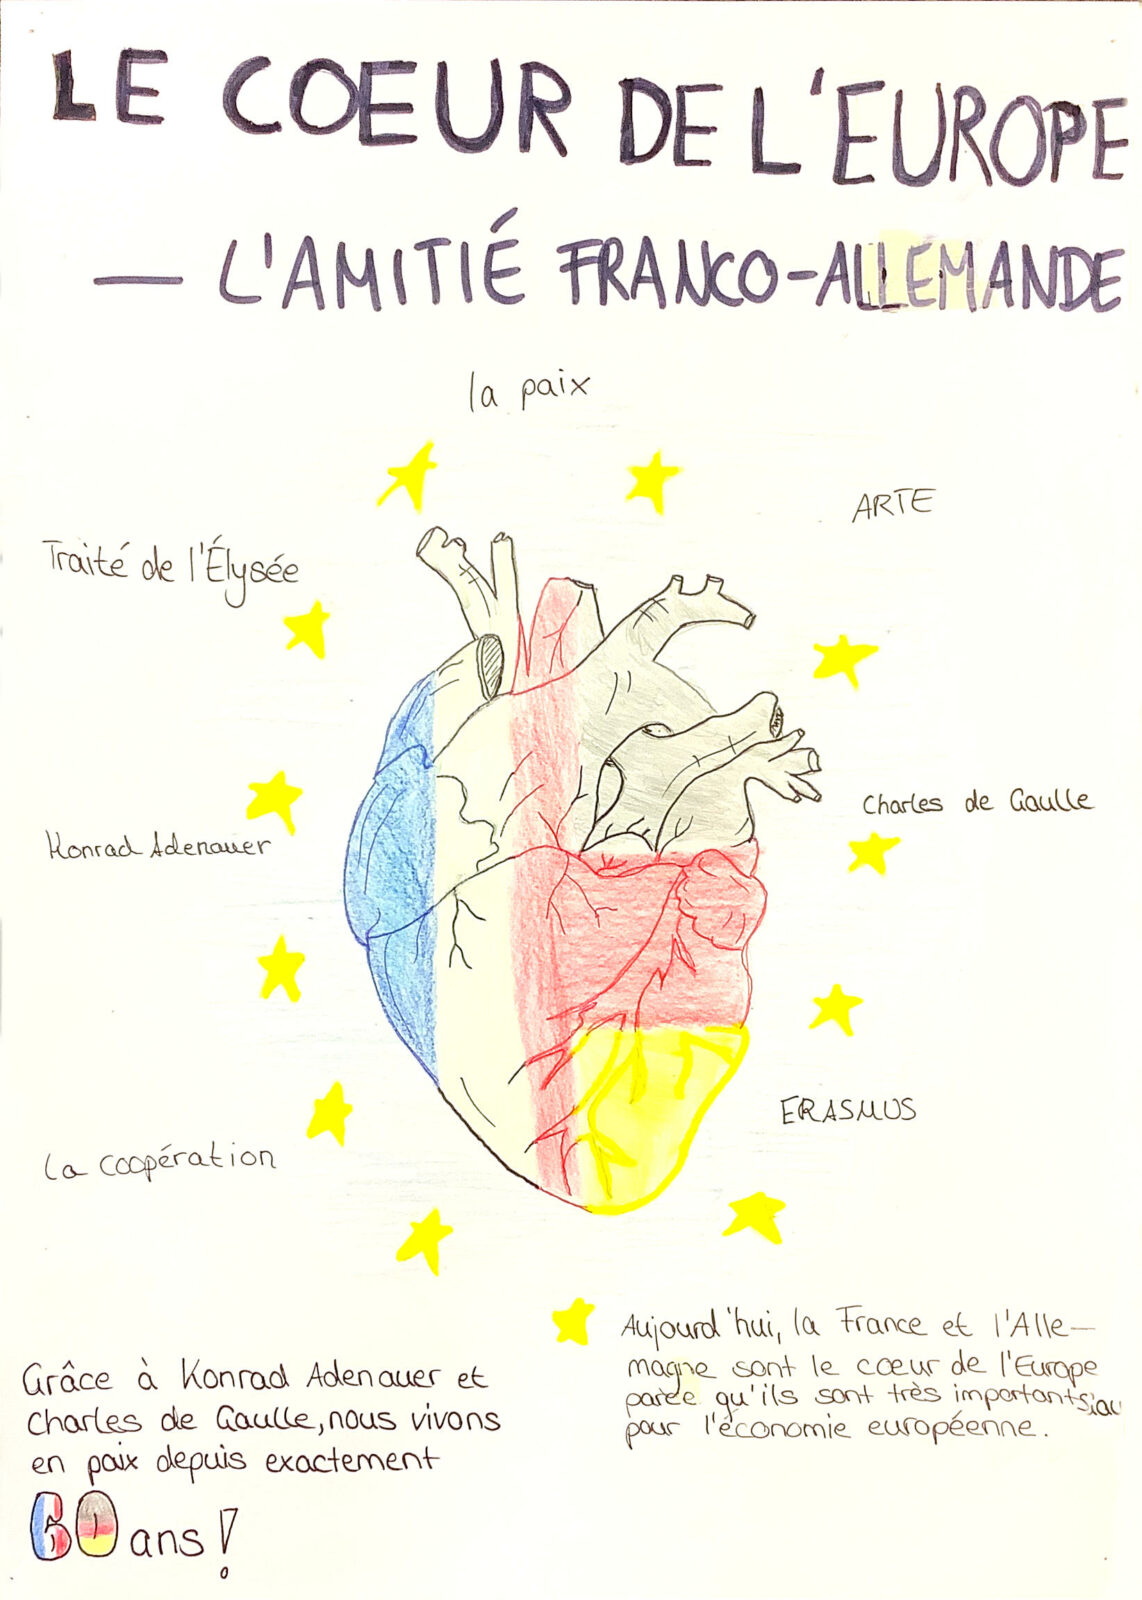 LE COEUR DE L'EUROPE
— L'AMITIÉ FRANCO-ALLEMANDE
la paix
ARTE
Traité de l'Élysée
Charles de Gaulle
Konrad Adenauer
ERASMUS
La coopération
Grâce à Konrad Adenauer et
Charles de Gaulle, nous vivons
en paix depuis exactement
60 ans!
Aujourd'hui, la France et l'Alle-
magne sont le cœur de l'Europe
parce qu'ils sont très importants
pour l'économie européenne.